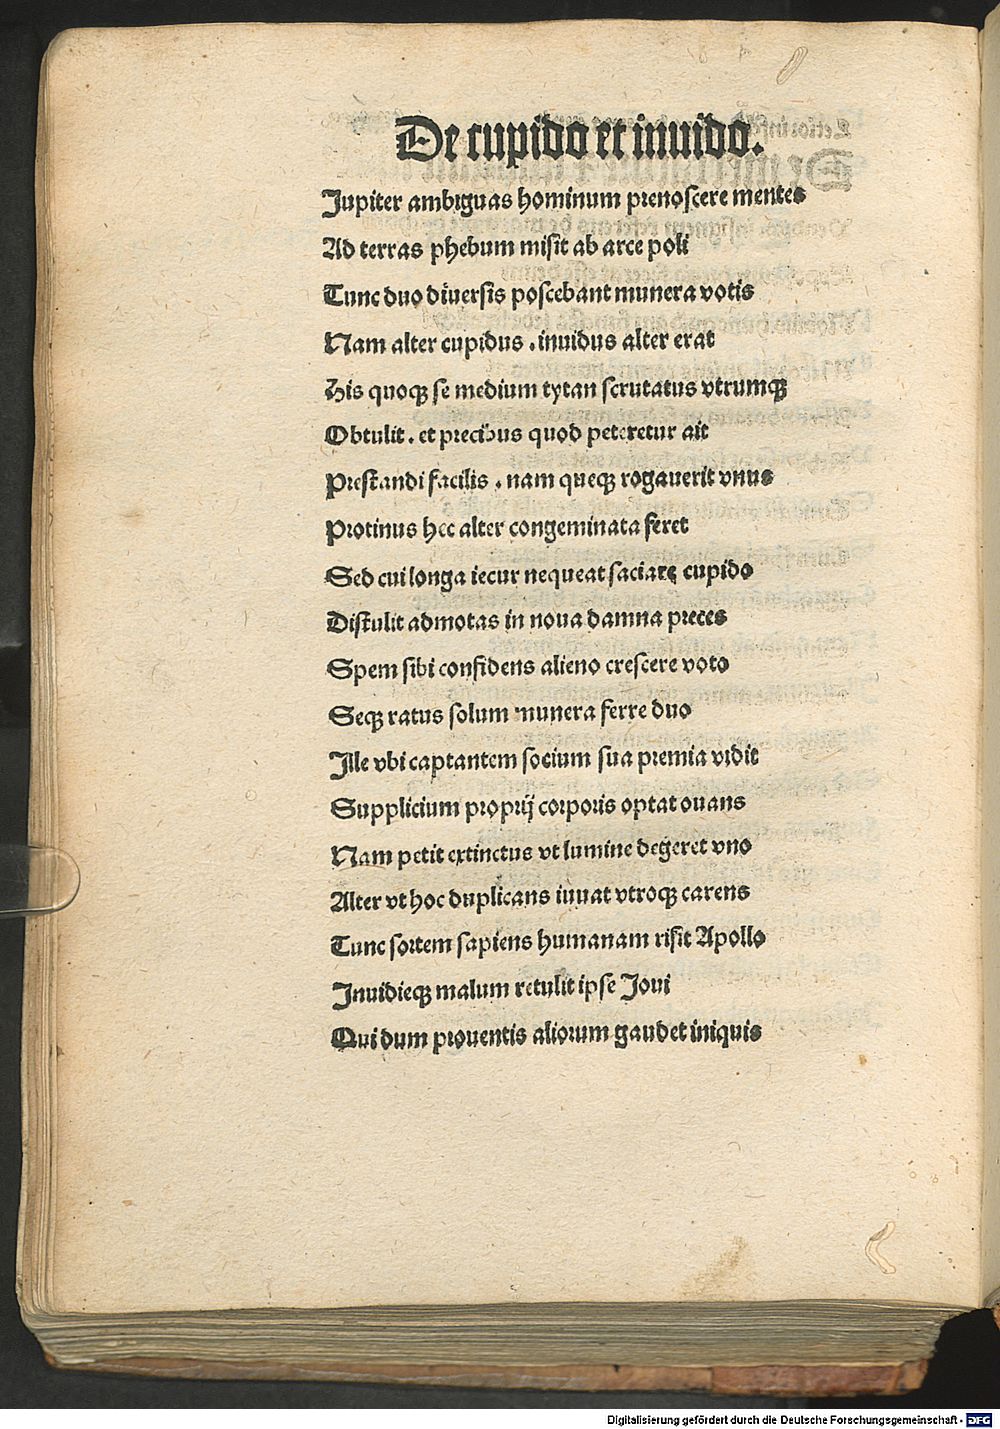 De cupido et inuido.
Jupiter ambiguas hominum prenoscere mentes
Ad terras phebum misit ab arce poli
Tunc duo diuersis poscebant munera votis
Nam alter cupidus . inuidus alter erat
His quoqꝫ se medium tytan scrutatus vtrumqꝫ
Obtulit . et precibus quod peteretur ait
Prestandi facilis . nam queqꝫ rogauerit vnus
Protinus hec alter congeminata feret
Sed cui longa iecur nequeat saciare cupido
Distulit admotas in noua damna preces
Spem sibi confidens alieno crescere voto
Seqꝫ ratus solum munera ferre duo
Ille vbi captantem socium sua premia vidit
Supplicium proprij corporis optat ouans
Nam petit extinctus vt lumine degeret vno
Alter vt hoc duplicans iuuat vtroqꝫ carens
Tunc sortem sapiens humanam risit Apollo
Inuidieqꝫ malum retulit ipse Joui
Qui dum prouentis aliorum gaudet iniquis
Digitalisierung gefördert durch die Deutsche Forschungsgemeinschaft - DFG